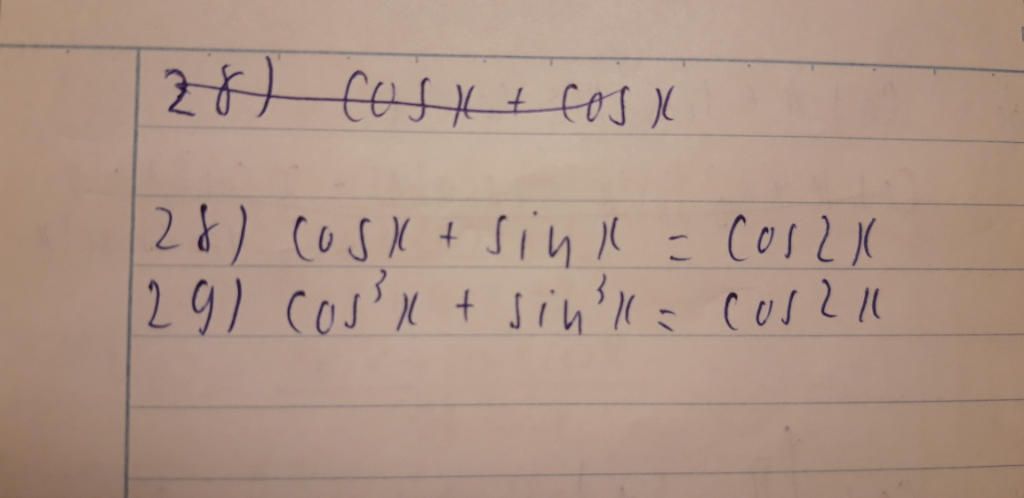 28) cosx + cosx
28) cosx + sinx = cos2x
29) cos³x + sin³x = cos2x